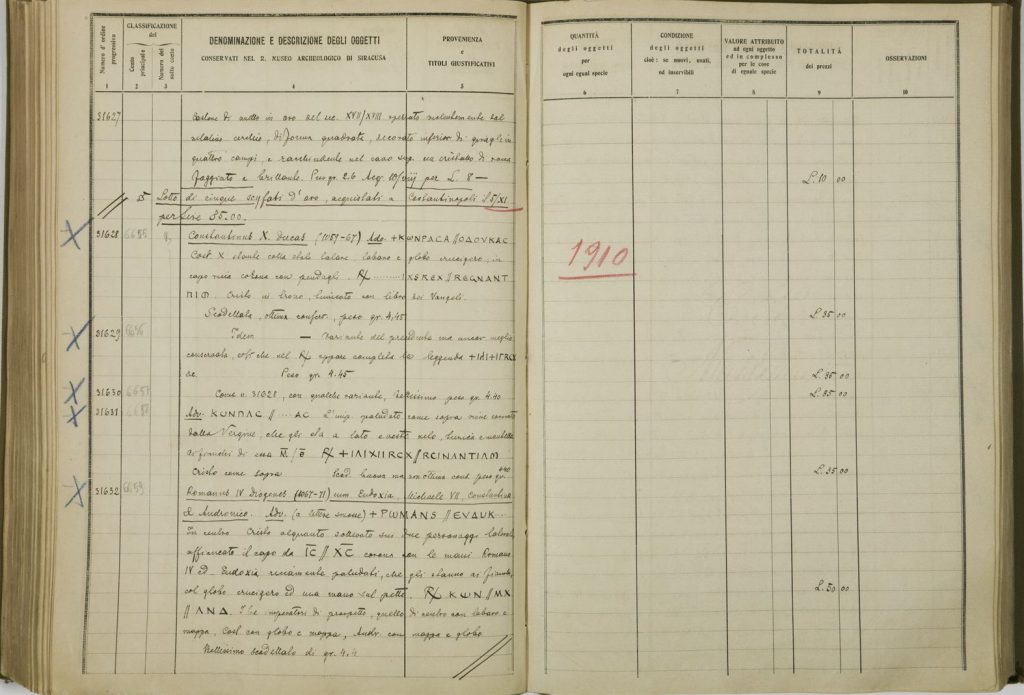 Numero d'ordine progressivo
CLASSIFICAZIONE del
Conto principale
Numero del sotto conto
DENOMINAZIONE E DESCRIZIONE DEGLI OGGETTI
CONSERVATI NEL R. MUSEO ARCHEOLOGICO DI SIRACUSA
PROVENIENZA
e
TITOLI GIUSTIFICATIVI
1 2 3 4 5
QUANTITÀ
degli oggetti
per
ogni egual specie
CONDIZIONE
degli oggetti
cioè: se nuovi, usati,
od inservibili
VALORE ATTRIBUITO
ad ogni oggetto
ed in complesso
per le cose
di eguale specie
TOTALITÀ
dei prezzi
OSSERVAZIONI
6 7 8 9 10
31627 Castone di anello in oro del sec. XVII/XVIII
di forma quadrata, decorato
quattro campi, e racchiudente nel cavo sup. un cristallo di rocca
e brillante. Peso gr. 2.6 per L. 8 — L. 10 00
Lotto di cinque scyfati d'oro, acquistati a Costantinopoli
per lire 35.00.
1910
31628 6655 Constantinus X. Ducas (1059-67) Adv. +KΩNPACA//OΔOVKAC
Cost. X stante colla stola talare, labaro e globo crucigero, in
capo corona con pendagli. ℞ ......IXSREX//REGNANT
Cristo in trono, tunicato con libro dei Vangeli.
Scodellata, ottima conserv., peso gr. 4.45 L. 35 00
31629 6656 Idem — variante del precedente ma ancor meglio
conservata, nel ℞ appare completa la leggenda
ec. Peso gr. 4.45 L. 35 00
31630 6657 Come a 31628, con qualche variante, bellissimo peso gr. 4.40 L. 35 00
31631 6658 Adv. KONPAC//...AC L'imp. paludato come sopra viene coronato
dalla Vergine, che gli sta a lato
ai fianchi di essa
Cristo come sopra Scod. buona ma non ottima cons. peso gr. 4.40 L. 35 00
31632 6659 Romanus IV Diogenes (1067-71) cum Eudoxia, Michaele VII, Constantino
et Andronico. Adv. (a lettere smosse) +PΩMANS//EVΔUK...
In centro Cristo alquanto sollevato sui due personaggi laterali
affiancato il capo da IC//XC corona con le mani Romano
IV ed Eudoxia riccamente paludati, che gli stanno ai fianchi,
col globo crucigero ed una mano sul petto. ℞ KΩN//MX L. 50 00
//ANΔ. I tre imperatori di prospetto, quello di centro con labaro e
mappa, Cost. con globo e mappa, Andr. con mappa e globo
Bellissimo scodellato di gr. 4.4